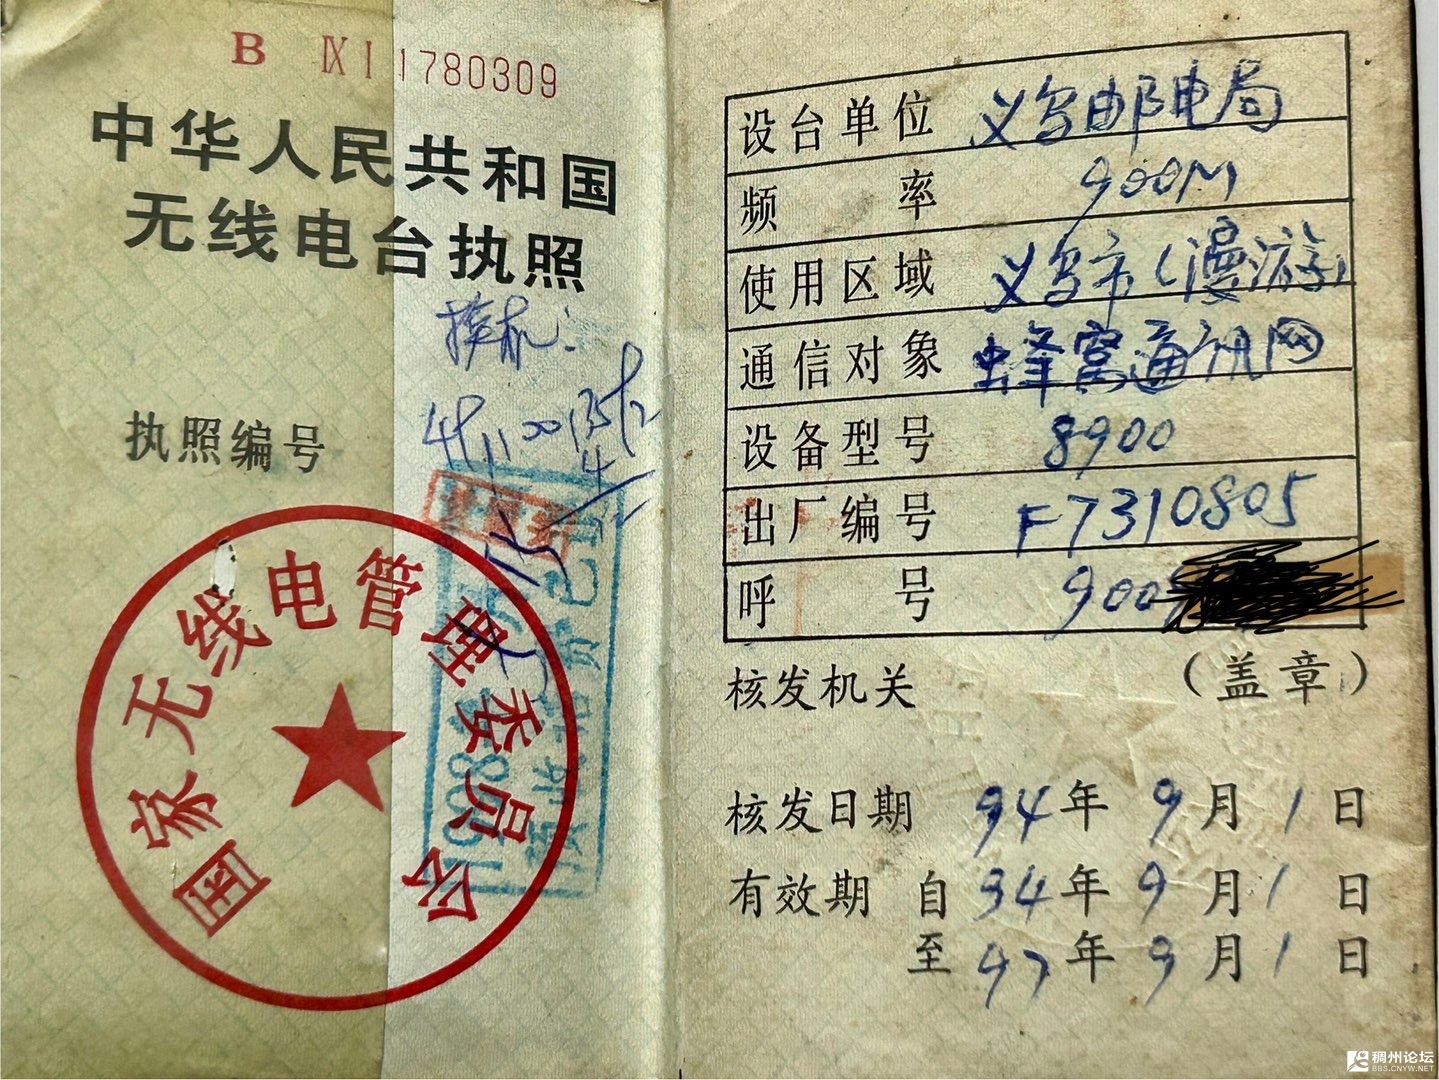 B Ⅸ I 1780309
中华人民共和国
无线电台执照
换机:
执照编号
国家无线电管理委员会
设台单位 义乌邮电局
频率 900M
使用区域 义乌市(漫游)
通信对象 蜂窝通讯网
设备型号 8900
出厂编号 F7310805
呼号 900
核发机关 (盖章)
核发日期 94年9月1日
有效期 自94年9月1日
至97年9月1日
稠州论坛
BBS.CNYW.NET